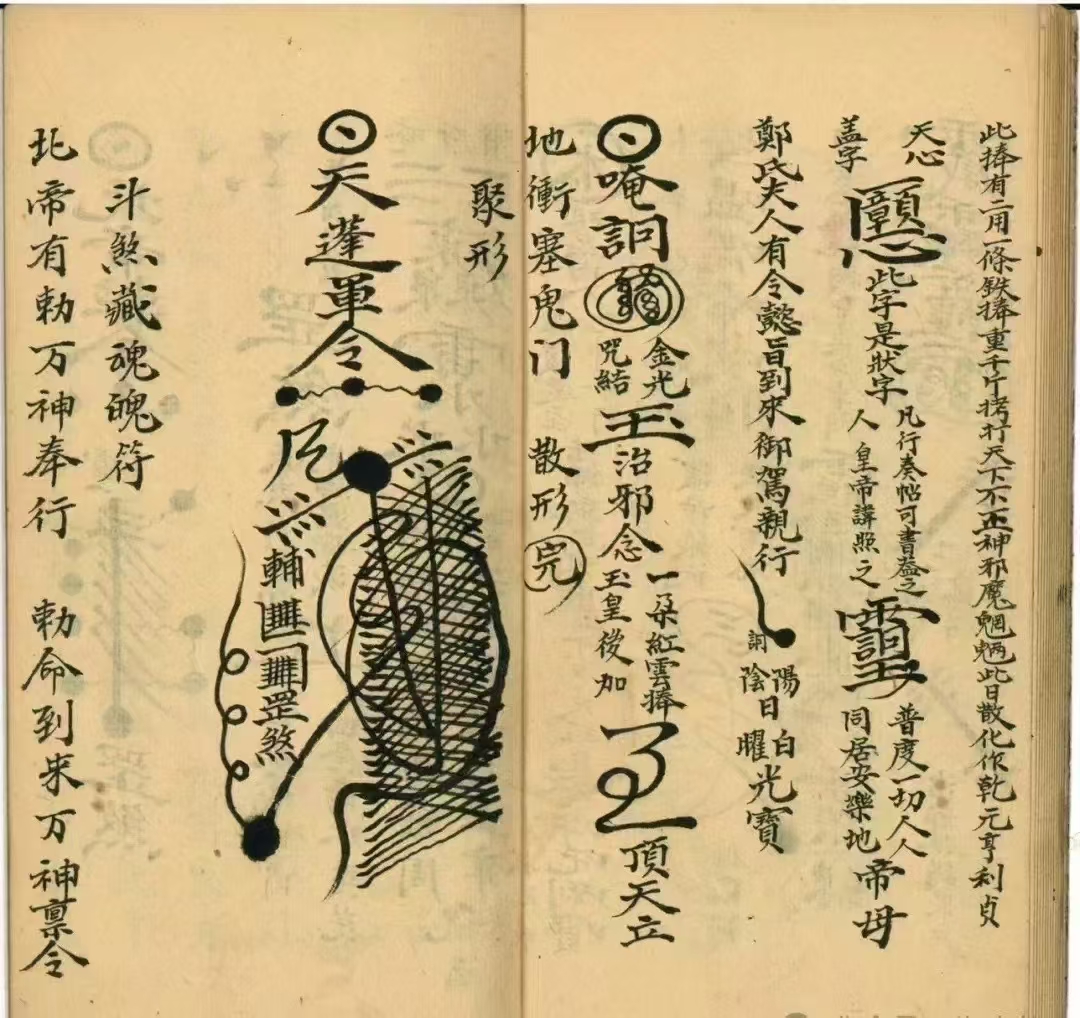 此捧有二用一條鉄捧重千斤拷打天下不正神邪魔魍魎此日散化作乾元亨利貞
天心
盖字
此字是狀字
凡行奏帖可書益之
人皇帝講照之
普度一切人人
同居安樂地
帝母
鄭氏夫人有令懿旨到來御駕親行
訶
陽日白
陰日曜
光寶
唵訶
金光
咒結
玉治邪念
一朶紅雲捧
玉皇後加
頂天立
地衝塞鬼门 散形
聚形
天蓬軍令
輔
罡煞
斗煞藏魂魄符
北帝有勅万神奉行 勅命到来万神禀令